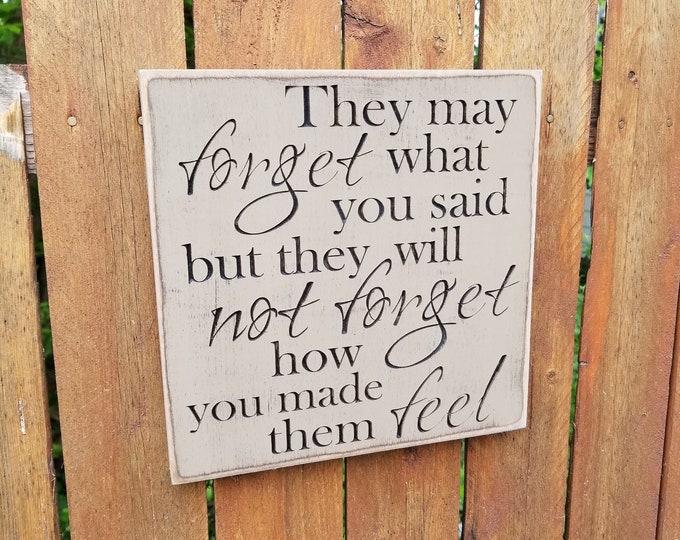 They may
forget what
you said
but they will
not forget
how
you made
them feel